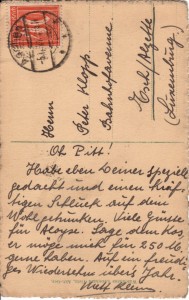 Herrn
Peter Klopp
Bahnhofavenue
Esch/Alzette
(Luxemburg)
Oh Pitt!
Habe eben Deiner speziell
gedacht und einen kräf-
tigen Schluck auf dein
Wohl getrunken. Viele Grüsse
für Aloyse. Sage dem
er möge mich für 250
gerne haben. Auf ein freudi-
ges Wiedersehn übers Jahr.